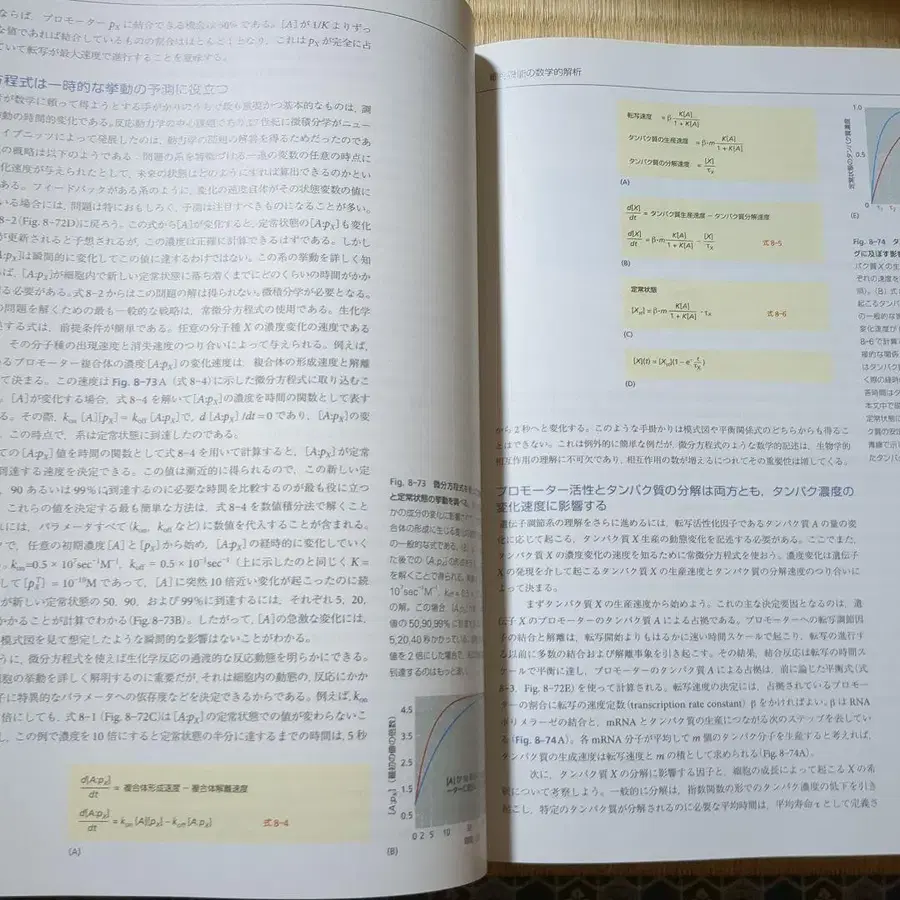 ならば、プロモーター pX に結合できる機会は 50% である。[A] が 1/K よりずっ
な値であれば結合しているものの割合はほとんど 1 となり、これは pX が完全に占
いて転写が最大速度で進行することを意味する。
程式は一時的な挙動の予測に役立つ
が数学に頼って得ようとする手がかりのうちで最も重要かつ基本的なものは、調
動の時間的変化である。
イプニッツによって発展したのは、動力学の問題の解答を得るためだったのであ
の概略は以下のようである：問題の系を特徴づける一連の変数の任意の時点に
化速度が与えられたとして、未来の状態はどのように算出できるのかとい
ある。フィードバックがある系のように、変化の速度自体がその状態変数の値に
いる場合には、問題は特におもしろく、予測は注目すべきものになることが多い。
8-2 (Fig. 8-72D) に戻ろう。この式から [A] が変化すると、定常状態の [A:pX] も変化
が更新されると予想されるが、この濃度は正確に計算できるはずである。しかし
A:pX] は瞬間的に変化してこの値に達するわけではない。この系の挙動を詳しく知
ば、[A:pX] が細胞内で新しい定常状態に落ち着くまでにどのくらいの時間がかか
る必要がある。式 8-2 からはこの問題の解は得られない。微積分学が必要となる。
の問題を解くための最も一般的な戦略は、常微分方程式の使用である。生化学
する式は、前提条件が簡単である。任意の分子種 X の濃度変化の速度である
、その分子種の出現速度と消失速度のつり合いによって与えられる。例えば、
るプロモーター複合体の濃度 [A:pX] の変化速度は、複合体の形成速度と解離
て決まる。この速度は Fig. 8-73 A (式 8-4) に示した微分方程式に取り込むこ
。[A] が変化する場合、式 8-4 を解いて [A:pX] の濃度を時間の関数として表す
る。その際、kon [A][pX] = koff [A:pX] で、d [A:pX] /dt = 0 であり、[A:pX] の変
、この時点で、系は定常状態に到達したのである。
ての [A:pX] 値を時間の関数として式 8-4 を用いて計算すると、[A:pX] が定常
到達する速度を決定できる。この値は漸近的に得られるので、この新しい定
、90 あるいは 99% に到達するのに必要な時間を比較するのが最も役に立つ
これらの値を決定する最も簡単な方法は、式 8-4 を数値積分法で解くこと
には、パラメータすべて (kon, koff など) に数値を代入することが含まれる。
で、任意の初期濃度 [A] と [pX] から始め、[A:pX] の経時的に変化していく
。kon=0.5 × 10⁷sec⁻¹M⁻¹, koff = 0.5 × 10⁻¹sec⁻¹ (上に示したのと同じく K =
して [pXᵀ] = 10⁻¹⁰M であって、[A] に突然 10 倍近い変化が起こったのに続
が新しい定常状態の 50、90、および 99% に到達するには、それぞれ 5、20、
かかることが計算でわかる (Fig. 8-73B)。したがって、[A] の急激な変化には、
模式図を見て想定したような瞬間的な影響はないことがわかる。
うに、微分方程式を使えば生化学反応の過渡的な反応動態を明らかにできる。
胞の挙動を詳しく解明するのに重要だが、それは細胞内の動態の、反応にかか
子に特異的なパラメータへの依存度などを決定できるからである。例えば、kon
倍にしても、式 8-1 (Fig. 8-72C) は [A:pX] の定常状態での値が変わらないこ
し、この例で濃度を 10 倍にすると定常状態の半分に達するまでの時間は、5 秒
d[A:pX]/dt = 複合体形成速度 − 複合体解離速度
d[A:pX]/dt = kon [A][pX] − koff [A:pX] 式 8-4
(A)
Fig. 8-73 微分方程式を
と定常状態の挙動を調べる。
かの成分の変化に影響
合体の形成に生じる
の一般的な式である。
た後での [A:pX] の形成
を解くことで得られる。
10⁷sec⁻¹M⁻¹, koff = 0.5
の解。この場合 [A:pX]
値の 50,90,99% に
5,20,40 秒かかっている。
値を 2 倍にした場合で、
到達するのはもっと速い
[A:pX] (最初の値の倍数)
4.5
3.5
2.5
1.5
0.5
0 2 5 10
(B)
細胞機能の数学的解析
転写速度 = β K[A]/1 + K[A]
タンパク質の生産速度 = β·m K[A]/1 + K[A]
タンパク質の分解速度 = [X]/τX
(A)
d[X]/dt = タンパク質生産速度 − タンパク質分解速度
d[X]/dt = β·m K[A]/1 + K[A] − [X]/τX 式 8-5
(B)
定常状態
[Xst] = β·m K[A]/1 + K[A] · τX 式 8-6
(C)
[X](t) = [Xst](1 − e^−t/τX)
(D)
1.0
0.5
0
τ1 τ2
定常状態のタンパク質濃度
(E)
Fig. 8-74 タ
グに及ぼす影響
パク質 X の生
それぞの速度を
る)。(B) 式
起こるタンパ
の一般的な
変化速度が
8-6 で計算
接的な関係
はタンパク
く際の経時
答時間はタ
本文中で
定常状態に
ク質の安定
青線で示
たタンパ
から 2 秒へと変化する。このような手掛かりは模式図や平衡関係式のどちらからも得るこ
とはできない。これは例外的に簡単な例だが、微分方程式のような数学的記述は、生物学的
相互作用の理解に不可欠であり、相互作用の数が増えるにつれてその重要性は増してくる。
プロモーター活性とタンパク質の分解は両方とも、タンパク濃度の
変化速度に影響する
遺伝子調節系の理解をさらに進めるには、転写活性化因子であるタンパク質 A の量の変
化に応じて起こる、タンパク質 X 生産の動態変化を記述する必要がある。ここでまた、
タンパク質 X の濃度変化の速度を知るために常微分方程式を使おう。濃度変化は遺伝子
X の発現を介して起こるタンパク質 X の生産速度とタンパク質の分解速度のつり合いに
よって決まる。
まずタンパク質 X の生産速度から始めよう。これの主な決定要因となるのは、遺
伝子 X のプロモーターのタンパク質 A による占拠である。プロモーターへの転写調節因
子の結合と解離は、転写開始よりもはるかに速い時間スケールで起こり、転写の進行す
る以前に多数の結合および解離事象を引き起こす。その結果、結合反応は転写の時間ス
ケールで平衡に達し、プロモーターのタンパク質 A による占拠は、前に論じた平衡式 (式
8-3、Fig. 8-72E) を使って計算される。転写速度の決定には、占拠されているプロモー
ターの割合に転写の速度定数 (transcription rate constant) β をかければよい。β は RNA
ポリメラーゼの結合と、mRNA とタンパク質の生産につながる次のステップを表してい
る (Fig. 8-74 A)。各 mRNA 分子が平均して m 個のタンパク分子を生産すると考えれば、
タンパク質の生成速度は転写速度と m の積として求められる (Fig. 8-74A)。
次に、タンパク質 X の分解に影響する因子と、細胞の成長によって起こる X の希
釈について考察しよう。一般的に分解は、指数関数の形でのタンパク濃度の低下を引き
起こし、特定のタンパク質が分解されるのに必要な平均時間は、平均寿命 τ として定義さ